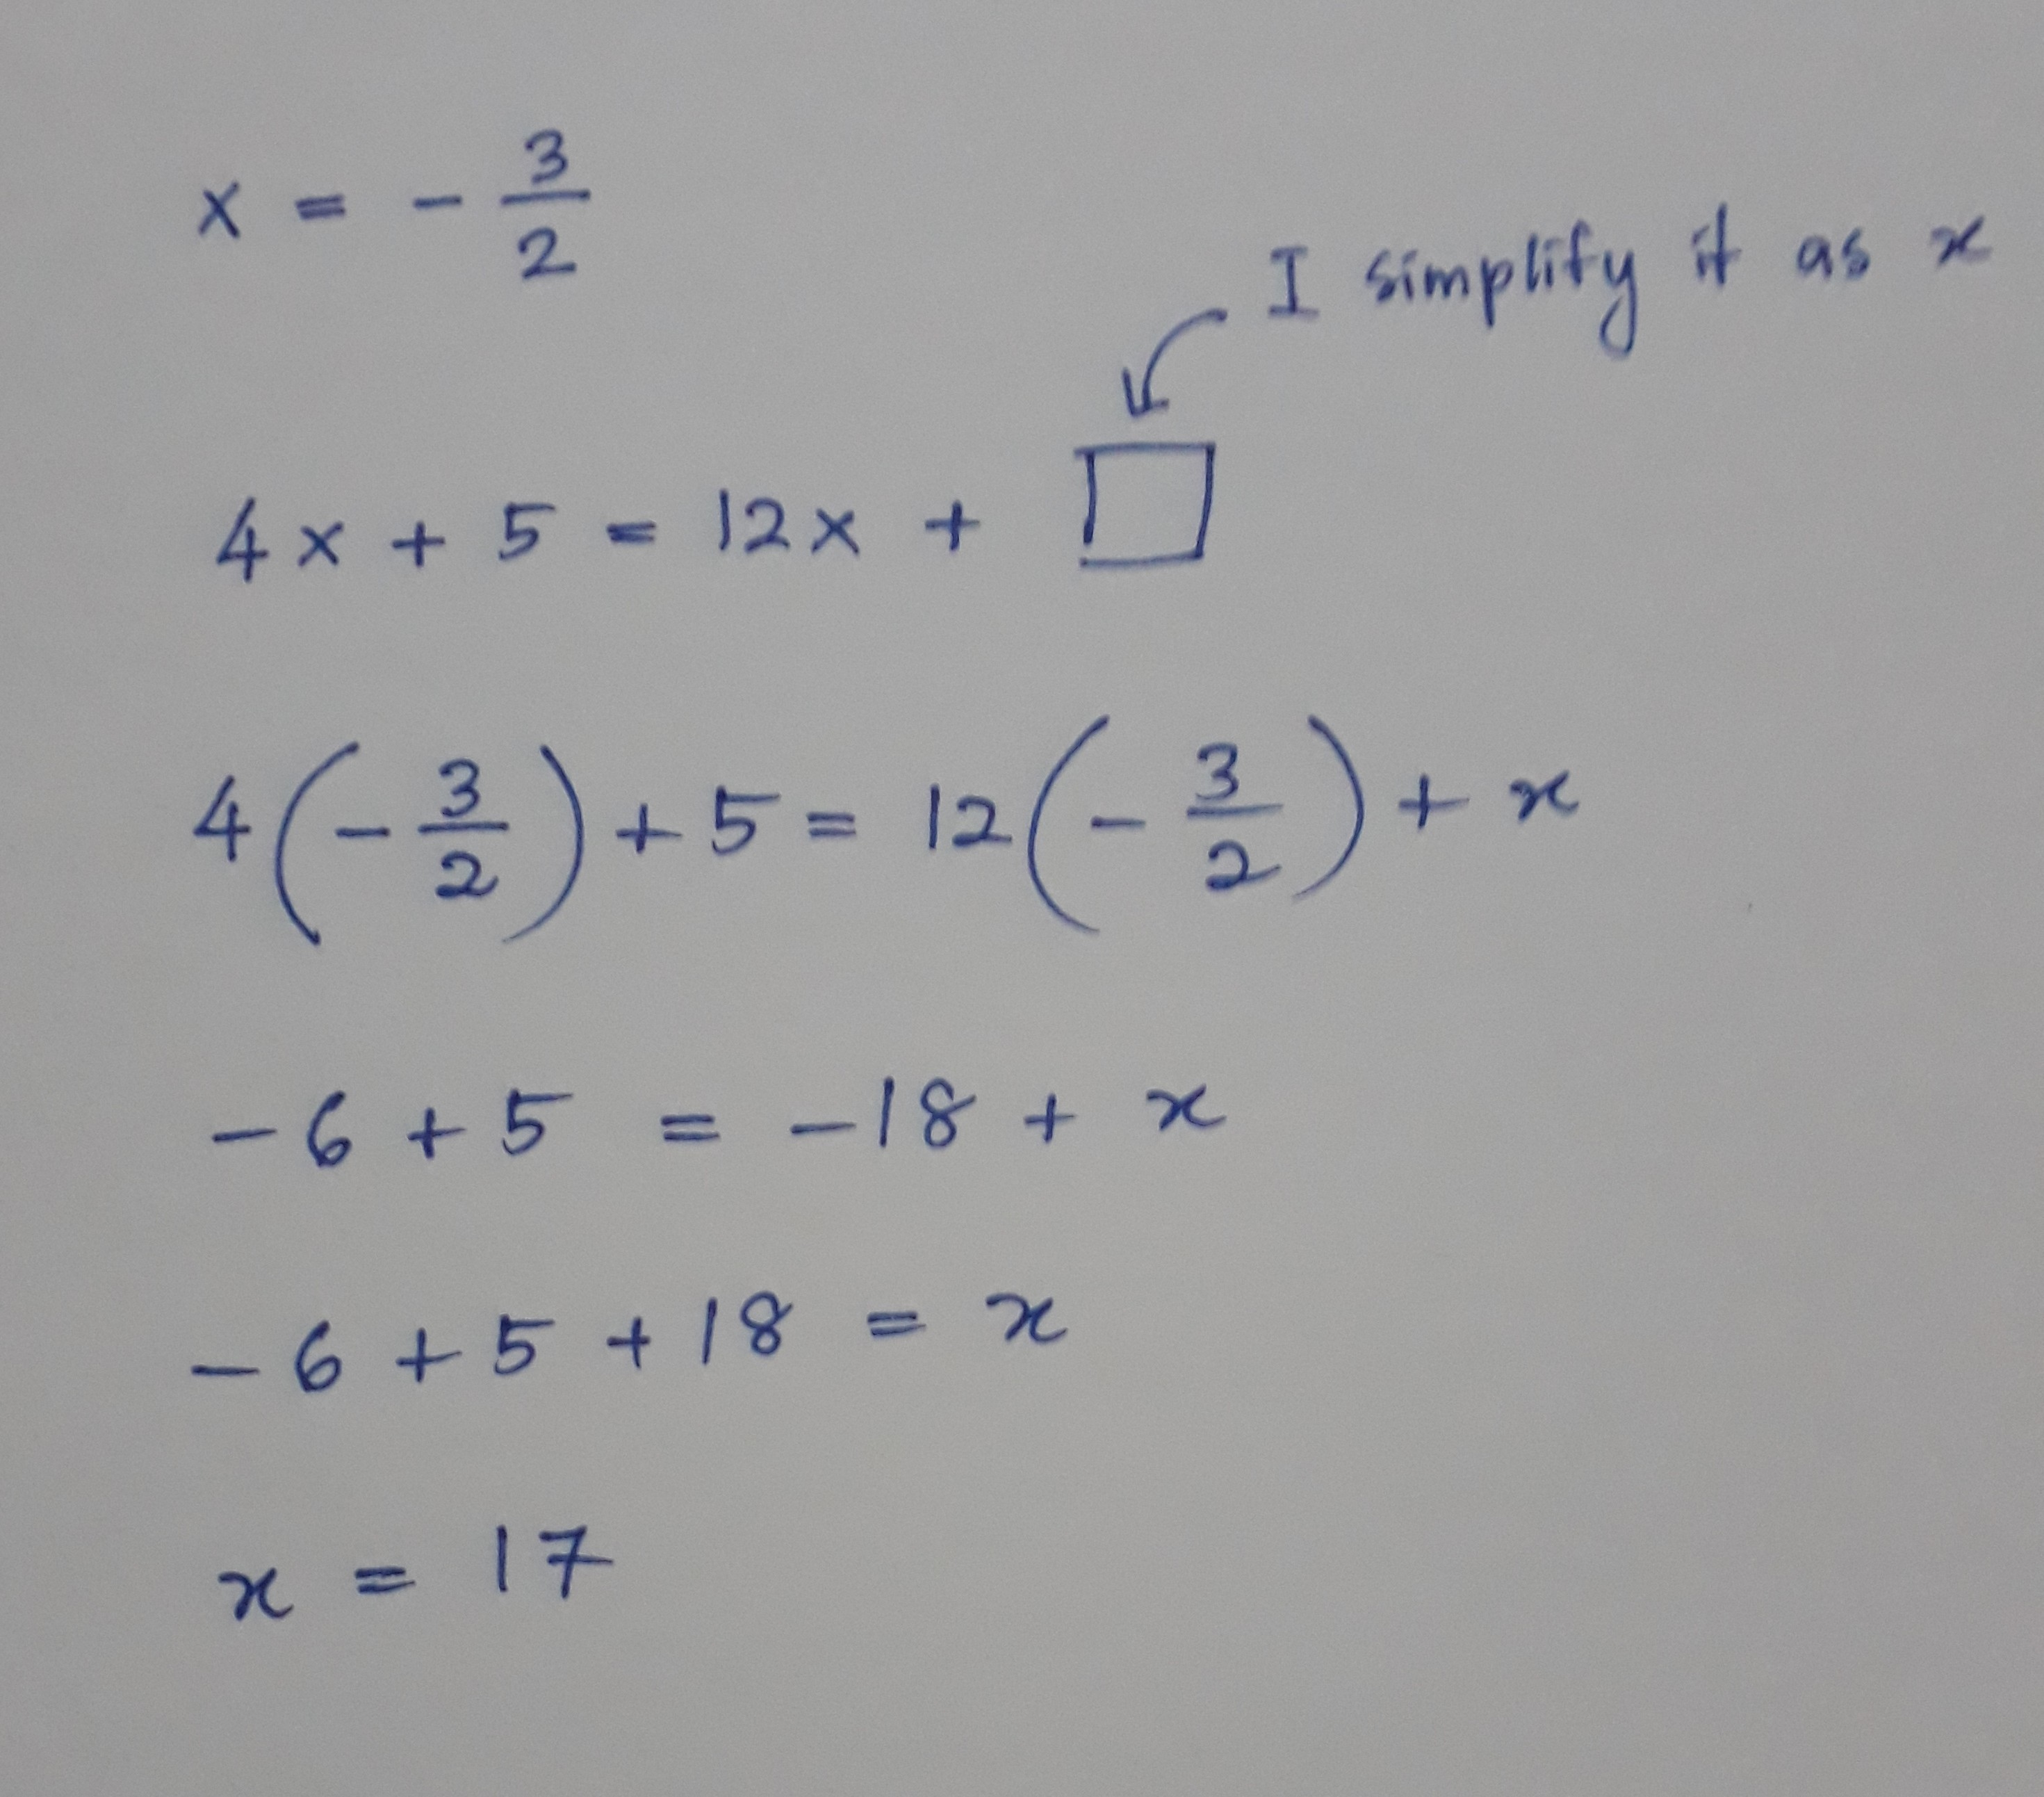 x = - 3/2
I simplify it as x
4x + 5 = 12x + □
4(- 3/2) + 5 = 12(- 3/2) + x
-6 + 5 = -18 + x
-6 + 5 + 18 = x
x = 17